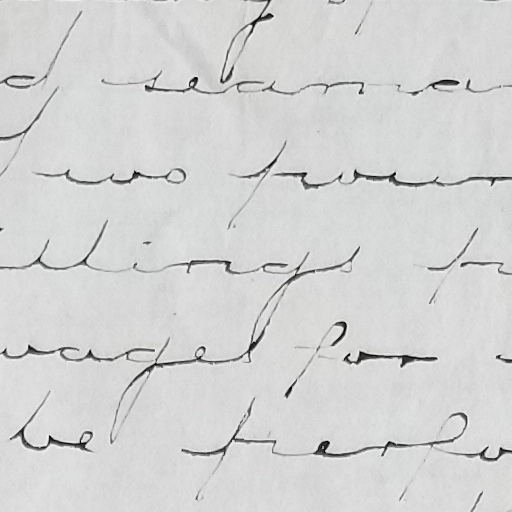 d seama
Two poun
illings p
wages for
be perfo